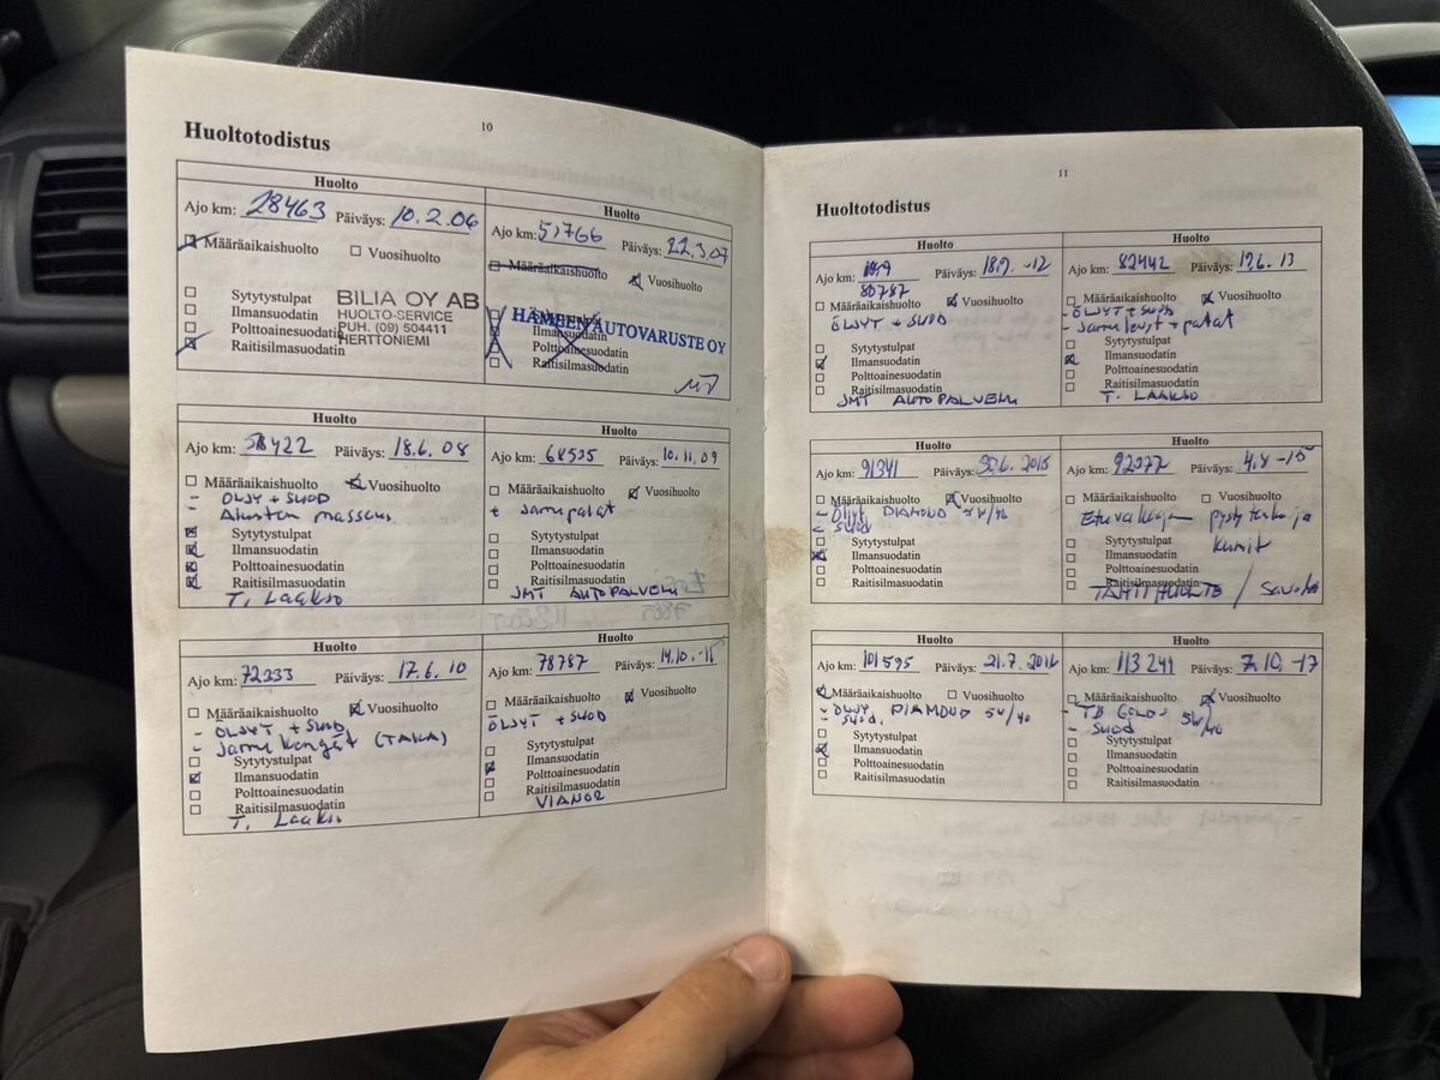 10
Huoltotodistus
Huolto
Ajo km: 28463 Päiväys: 10.2.06
Määräaikaishuolto Vuosihuolto
Sytytystulpat
Ilmansuodatin
Polttoainesuodatin
Raitisilmasuodatin
BILIA OY AB
HUOLTO-SERVICE
PUH. (09) 504411
HERTTONIEMI
Huolto
Ajo km: 51766 Päiväys: 22.3.07
Määräaikaishuolto
Vuosihuolto
HÄMEEN AUTOVARUSTE OY
Ilmansuodatin
Polttoainesuodatin
Raitisilmasuodatin
Huolto
Ajo km: 58422 Päiväys: 18.6.08
Määräaikaishuolto Vuosihuolto
- ÖLJY + SUOD
- Alustan massaus
Sytytystulpat
Ilmansuodatin
Polttoainesuodatin
Raitisilmasuodatin
T. Laakso
Huolto
Ajo km: 64535 Päiväys: 10.11.09
Määräaikaishuolto Vuosihuolto
+ Jarrupalat
Sytytystulpat
Ilmansuodatin
Polttoainesuodatin
Raitisilmasuodatin
JMT AUTOPALVELU
Huolto
Ajo km: 72333 Päiväys: 17.6.10
Määräaikaishuolto Vuosihuolto
- ÖLJYT + SUOD
- Jarrukengät (TAKA)
Sytytystulpat
Ilmansuodatin
Polttoainesuodatin
Raitisilmasuodatin
T. Laakso
Huolto
Ajo km: 78787 Päiväys: 14.10.-11
Määräaikaishuolto Vuosihuolto
ÖLJYT + SUOD
Sytytystulpat
Ilmansuodatin
Polttoainesuodatin
Raitisilmasuodatin
VIANOR
11
Huoltotodistus
Huolto
Ajo km: Päiväys: 18.9.-12
80787
Määräaikaishuolto Vuosihuolto
ÖLJYT + SUOD
Sytytystulpat
Ilmansuodatin
Polttoainesuodatin
Raitisilmasuodatin
JMT AUTOPALVELU
Huolto
Ajo km: 82442 Päiväys: 19.6.13
Määräaikaishuolto Vuosihuolto
- ÖLJYT + SUOD
- Jarrulevyt + palat
Sytytystulpat
Ilmansuodatin
Polttoainesuodatin
Raitisilmasuodatin
T. LAAKSO
Huolto
Ajo km: 91341 Päiväys: 30.6.2015
Määräaikaishuolto Vuosihuolto
- Öljyt DIAMOND 5W/40
- SUOD
Sytytystulpat
Ilmansuodatin
Polttoainesuodatin
Raitisilmasuodatin
Huolto
Ajo km: 92077 Päiväys: 4.8-15
Määräaikaishuolto Vuosihuolto
Etuvakaajan pystytanko ja
kumit
Sytytystulpat
Ilmansuodatin
Polttoainesuodatin
Raitisilmasuodatin
Huolto
Ajo km: 101595 Päiväys: 21.7.2016
Määräaikaishuolto Vuosihuolto
- ÖLJY DIAMOND 5W/40
- SUOD.
Sytytystulpat
Ilmansuodatin
Polttoainesuodatin
Raitisilmasuodatin
Huolto
Ajo km: 113241 Päiväys: 7.10.-17
Määräaikaishuolto Vuosihuolto
- 5W/40
- SUOD
Sytytystulpat
Ilmansuodatin
Polttoainesuodatin
Raitisilmasuodatin